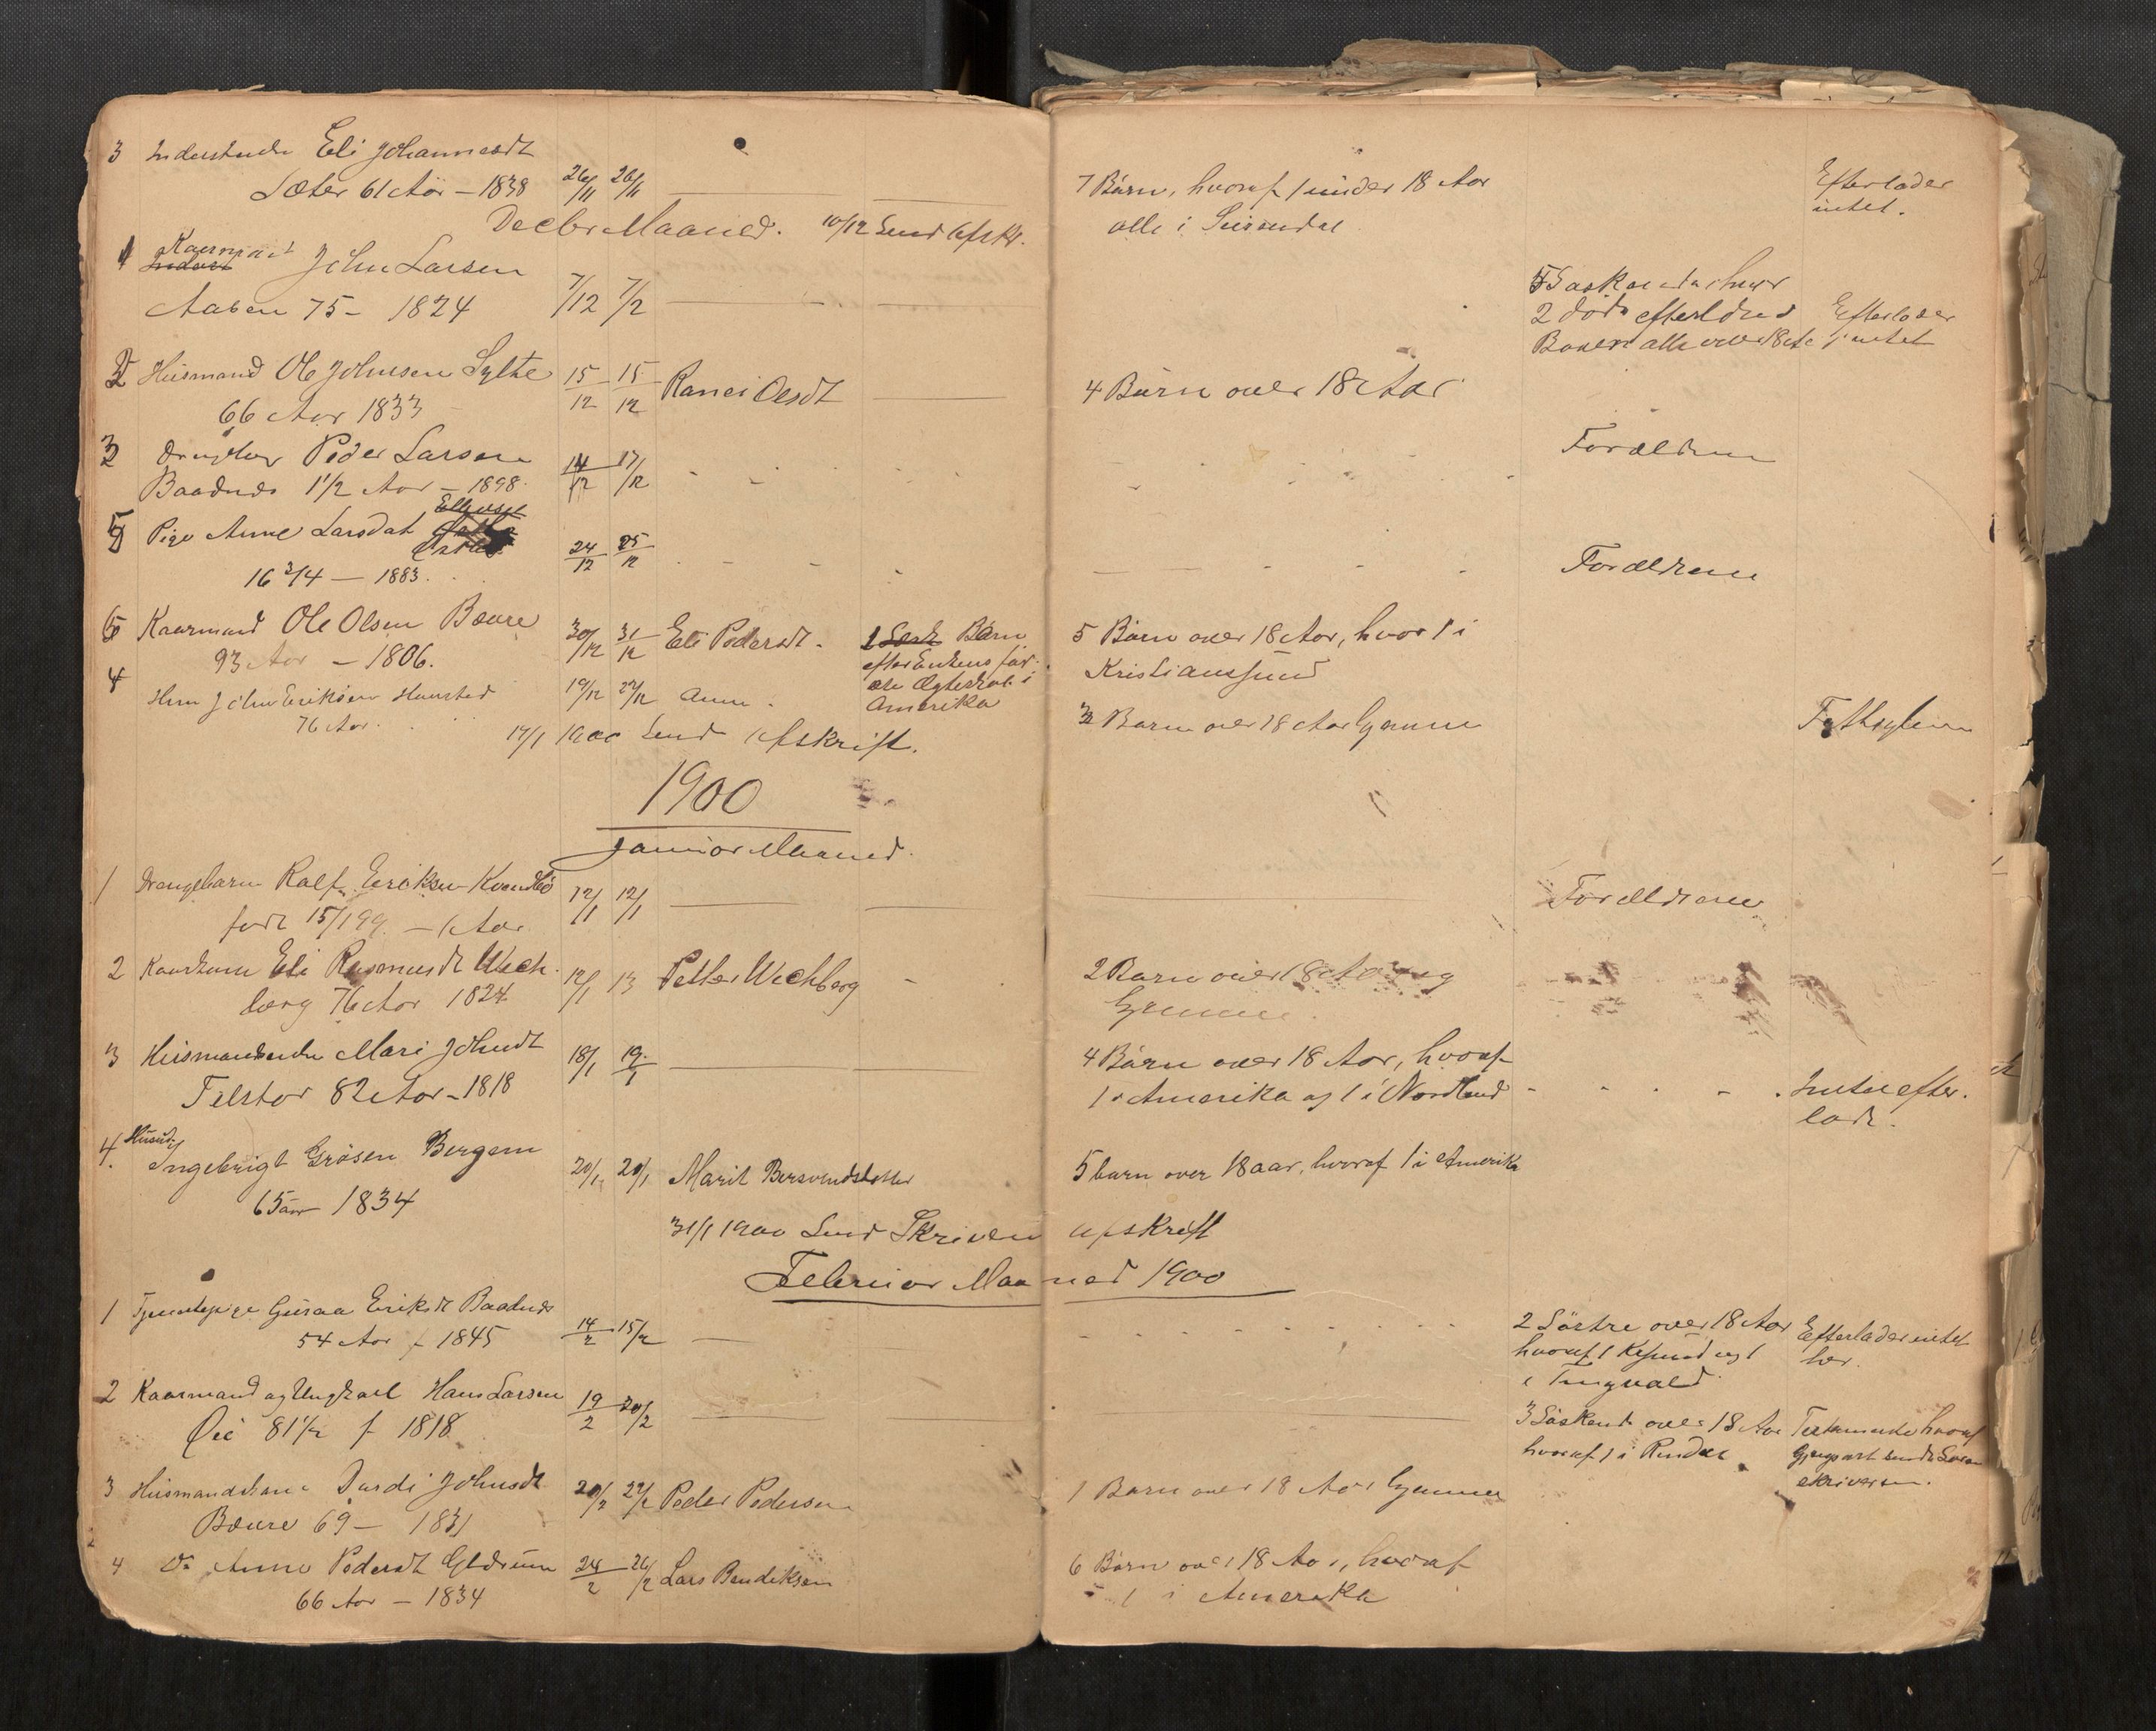 3 Inderstenke Eli Johannesdt
Sæter 61 Aar – 1838 26/11 26/11
7 Börn, hvoraf 1 under 18 Aar
alle i Surendal
Efterlader
intet.
Decbr Maaned. 10/12 Send Afskr.
1 Kaarmand John Larsen
Aaben 75 – 1824 7/12 7/12
5 Søskende hvor
2 døde efterladt
Børn alle over 18 Aar
Efterlader
intet
2 Husmand Ole Johnsen Sylte 15/12 15/12 Ranei Olesdt
66 Aar 1833
4 Börn over 18 Aar
3 Drengebarn Peder Larsen
Baadnes 1 1/2 Aar – 1898 14/12 17/12
Forældrene
5 Pige Anne Larsdat
16 3/4 – 1883. 24/12 25/12
Forældrene
6 Kaarmand Ole Olsen Bævre 30/12 31/12 Eli Pedersdt.
93 Aar – 1806.
Börn
efter Enkens før
ste Ægteskab i
Amerika
5 Börn over 18 Aar, hvor 1 i
Kristianssund
4 Hm John Eriksen Harsted 19/12 22/12 Anne
76 Aar.
3 Barn over 18 Aar hjemme
17/1 1900 Send Afskrift.
1900
Januar Maaned.
1 Drengebarn Ralf Eriksen Kvendbö 12/1 12/1
født 15/1 99. – 1 Aar
Forældrene
2 Kaarkone Eli Rasmusdt Wech-
berg 76 Aar 1824 12/1 13 Petter Wechberg
2 Barn over 18 Aar og
hjemme.
3 Husmandsenke Mari Johnsdt
Telstor 82 Aar – 1818 18/1 19/1
4 Börn over 18 Aar, hvoraf
1 i Amerika og 1 i Nordland
Intet efter.
ladt.
4. Husmd
Ingebrigt Grösen Bergem
65 aar 1834 20/1 20/1 Marit Bersvendsdatter
5 barn over 18 aar, hvoraf 1 i Amerika
31/1 1900 Send Skriven afskrift
Februar Maaned 1900
1 Tjenestepige Guraa Eriksdt Baadnes
54 Aar f 1845 14/2 15/2
2 Söstre over 18 Aar
hvoraf 1 Krsund og 1
i Tingvold
Efterlader intet
her.
2 Kaarmand og Ungkarl Hans Larsen
Øie 81 1/2 f 1818 19/2 20/2
3 Söskende over 18 Aar
hvoraf 1 i Rindal
Testamente hvoraf
Gjenpart sendt Soren
skriveren.
3 Husmandskone Dardi Johnsdt
Bævre 69 – 1831 20/2 22/2 Peder Pedersen
1 Barn over 18 Aar hjemme
4 Do Anne Pedersdt Glærum
66 Aar – 1834 24/2 26/2 Lars Bendiksen
6 Börn over 18 Aar, hvoraf
1 i Amerika